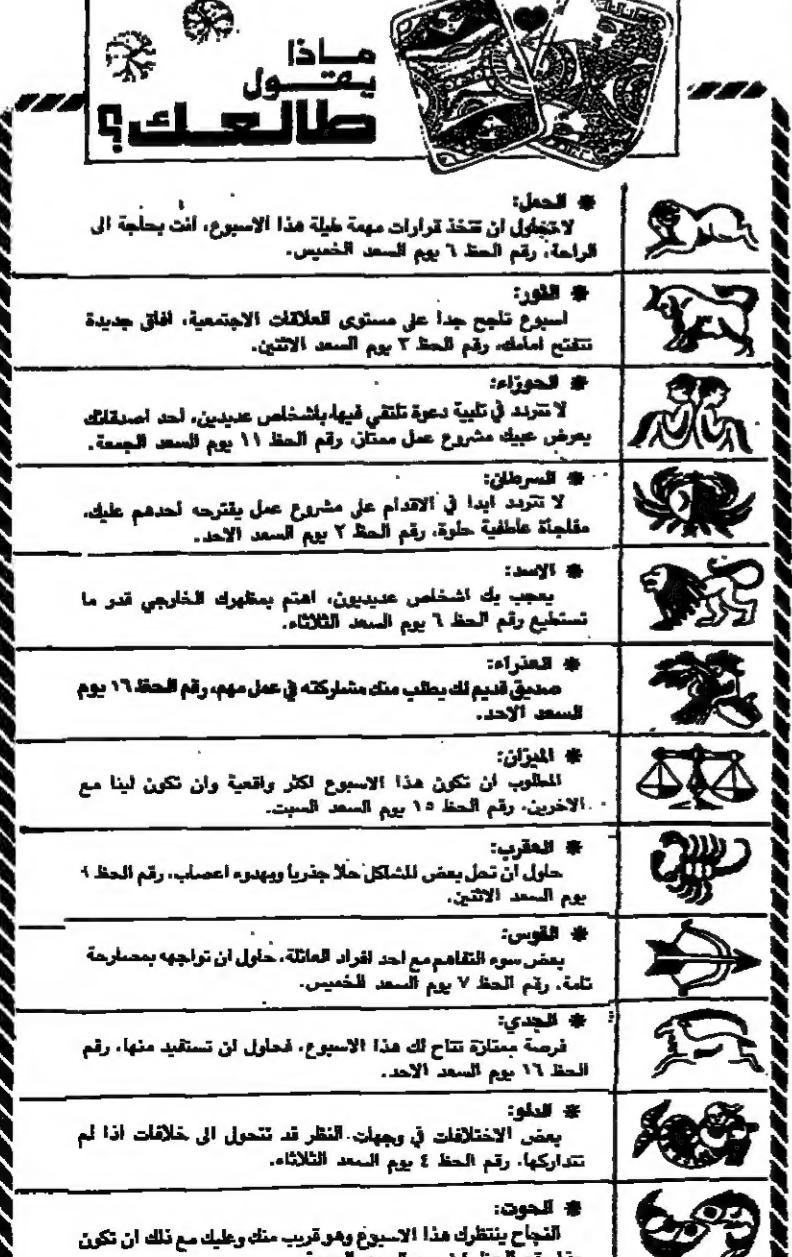 ماذا
يقول
طالعك؟
* الحمل:
لا تحاول ان تتخذ قرارات مهمة طيلة هذا الاسبوع، أنت بحاجة الى
الراحة، رقم الحظ ٦ يوم السعد الخميس.
* الثور:
اسبوع ناجح جداً على مستوى العلاقات الاجتمعية، افاق جديدة
تتفتح امامك، رقم الحظ ٣ يوم السعد الاثنين.
* الجوزاء:
لا تتردد في تلبية دعوة تلتقي فيها بأشخاص عديدين، أحد اصدقائك
يعرض عبيك مشروع عمل ممتاز، رقم الحظ ١١ يوم السعد الجمعة.
* السرطان:
لا تتردد ابدا في الاقدام على مشروع عمل يقترحه أحدهم عليك،
مفاجأة عاطفية حلوة، رقم الحظ ٢ يوم السعد الاحد.
* الاسد:
يعجب بك اشخاص عديديون، اهتم بمظهرك الخارجي قدر ما
تستطيع رقم الحظ ٦ يوم السعد الثلاثاء.
* العذراء:
صديق قديم لك يطلب منك مشاركته في عمل مهم، رقم الحظ ١٦ يوم
السعد الاحد.
* الميزان:
المطلوب ان تكون هذا الاسبوع اكثر واقعية وان تكون لينا مع
الاخرين، رقم الحظ ١٥ يوم السعد السبت.
* العقرب:
حاول ان تحل بعض المشاكل حلاً جذرياً وبهدوء اعصاب، رقم الحظ ٩
يوم السعد الاثنين.
* القوس:
بعض سوء التفاهم مع احد افراد العائلة، حاول ان تواجهه بمصارحة
تامة، رقم الحظ ٧ يوم السعد الخميس.
* الجدي:
فرصة ممتازة تتاح لك هذا الاسبوع، فحاول ان تستفيد منها، رقم
الحظ ١٦ يوم السعد الاحد.
* الدلو:
بعض الاختلافات في وجهات النظر قد تتحول الى خلافات اذا لم
تتداركها، رقم الحظ ٤ يوم السعد الثلاثاء.
* الحوت:
النجاح ينتظرك هذا الاسبوع وهو قريب منك وعليك مع ذلك ان تكون